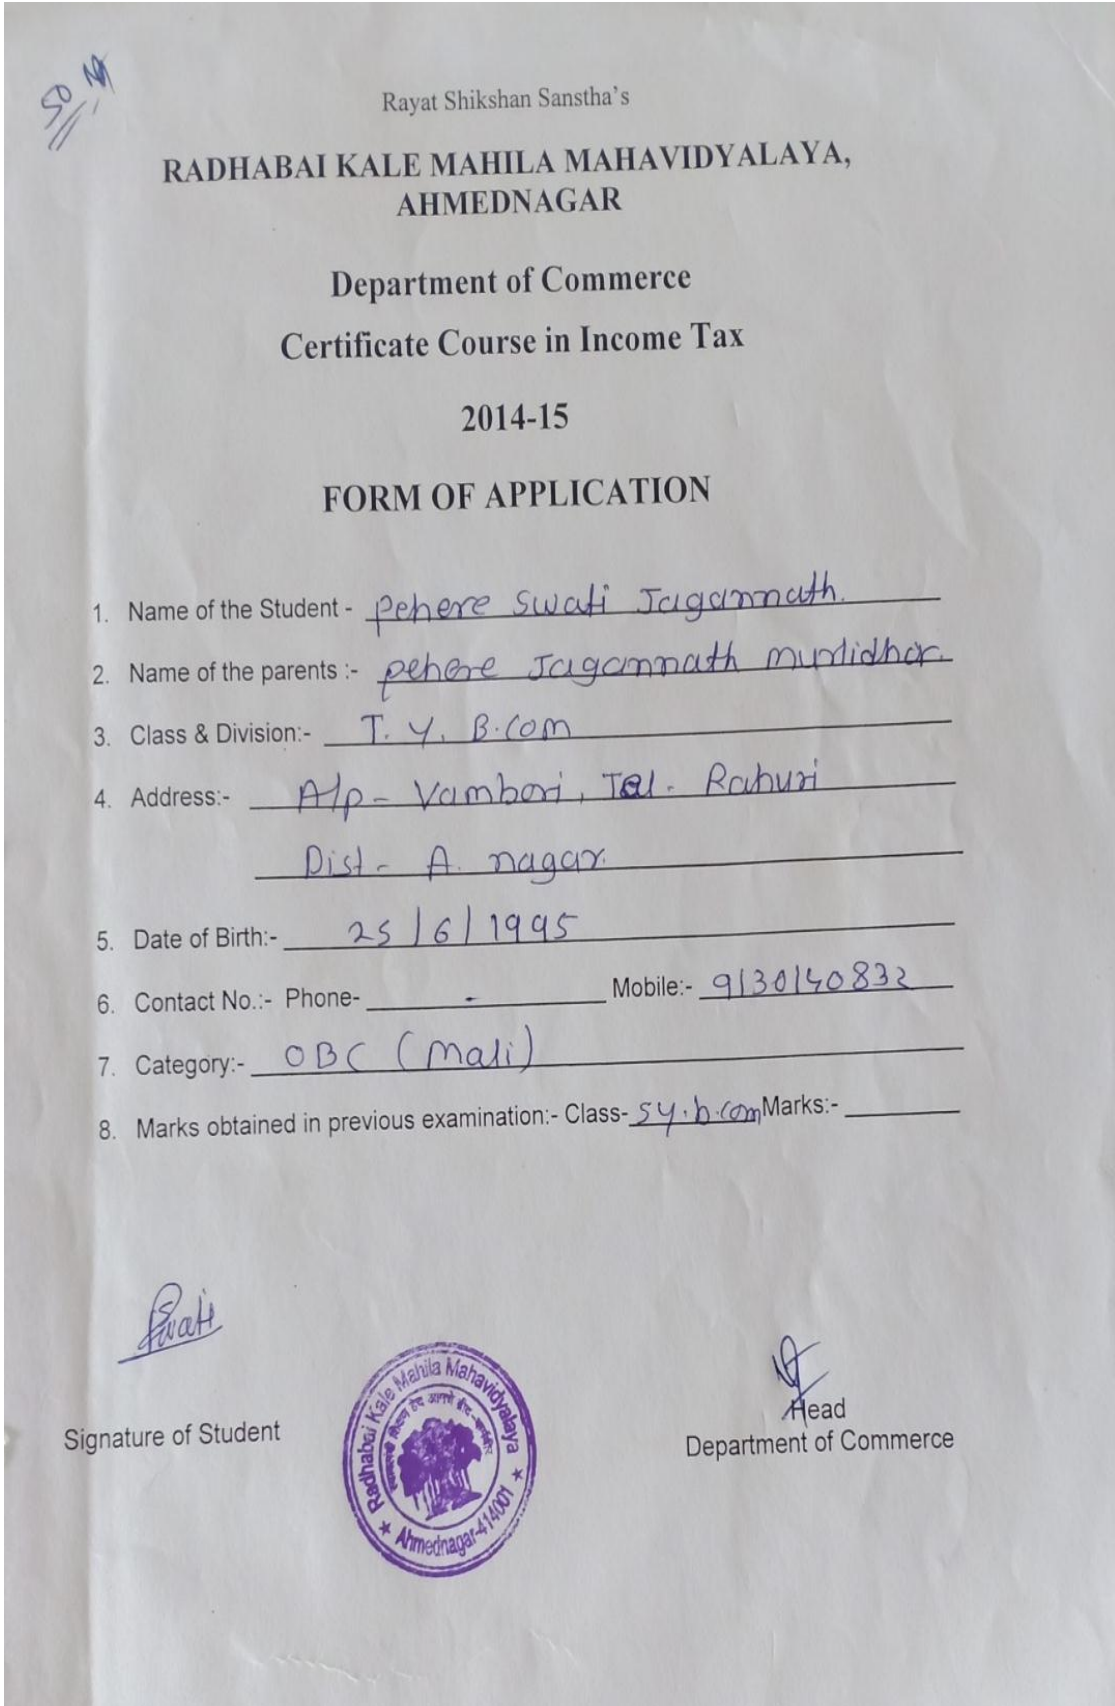 50
Rayat Shikshan Sanstha's
RADHABAI KALE MAHILA MAHAVIDYALAYA,
AHMEDNAGAR
Department of Commerce
Certificate Course in Income Tax
2014-15
FORM OF APPLICATION
1. Name of the Student - Pehere Swati Jagannath.
2. Name of the parents :- pehere Jagannath murlidhar.
3. Class & Division:- T. Y. B.com
4. Address:- A/p - Vambori, Tal - Rahuri
Dist - A. nagar.
5. Date of Birth:- 25/6/1995
6. Contact No.:- Phone- - Mobile:- 9130140832
7. Category:- OBC (mali)
8. Marks obtained in previous examination:- Class- SY.b.com Marks:-
Swati
Signature of Student
Head
Department of Commerce
★ Radhabai Kale Mahila Mahavidyalaya ★
Ahmednagar-414001